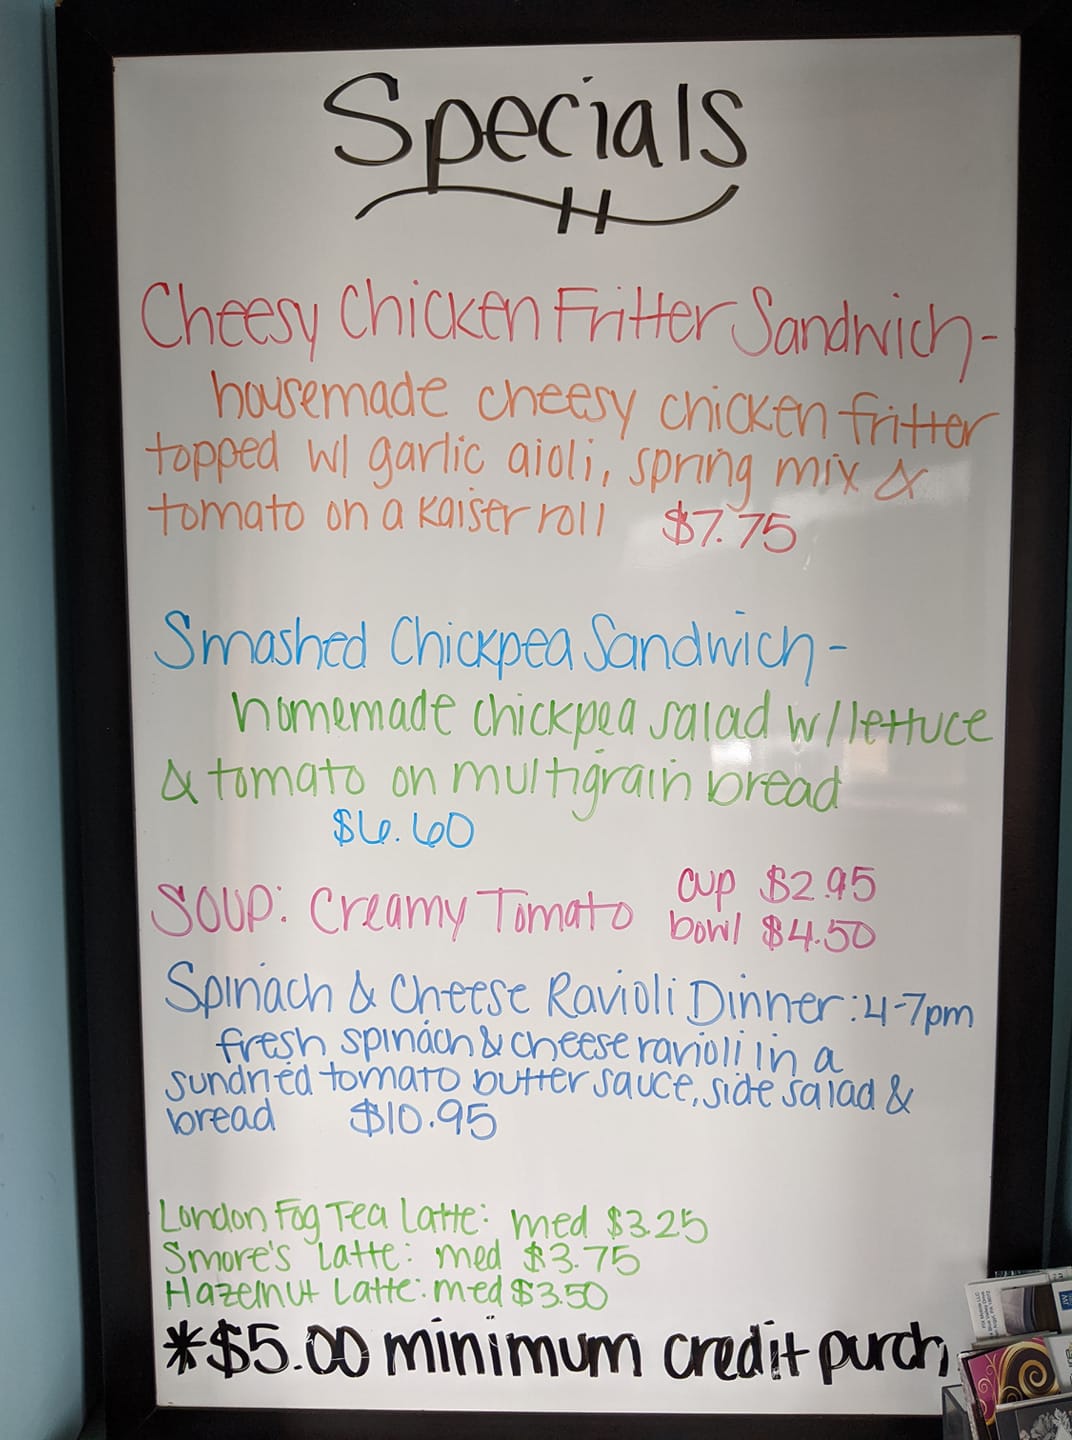 Specials
Cheesy Chicken Fritter Sandwich-
housemade cheesy chicken fritter
topped w/ garlic aioli, spring mix &
tomato on a kaiser roll $7.75
Smashed Chickpea Sandwich-
homemade chickpea salad w/lettuce
& tomato on multigrain bread
$6.60
SOUP: Creamy Tomato cup $2.95
bowl $4.50
Spinach & Cheese Ravioli Dinner: 4-7pm
fresh spinach & cheese ravioli in a
sundried tomato butter sauce, side salad &
bread $10.95
London Fog Tea Latte: med $3.25
Smore's Latte: med $3.75
Hazelnut Latte: med $3.50
*$5.00 minimum credit purch